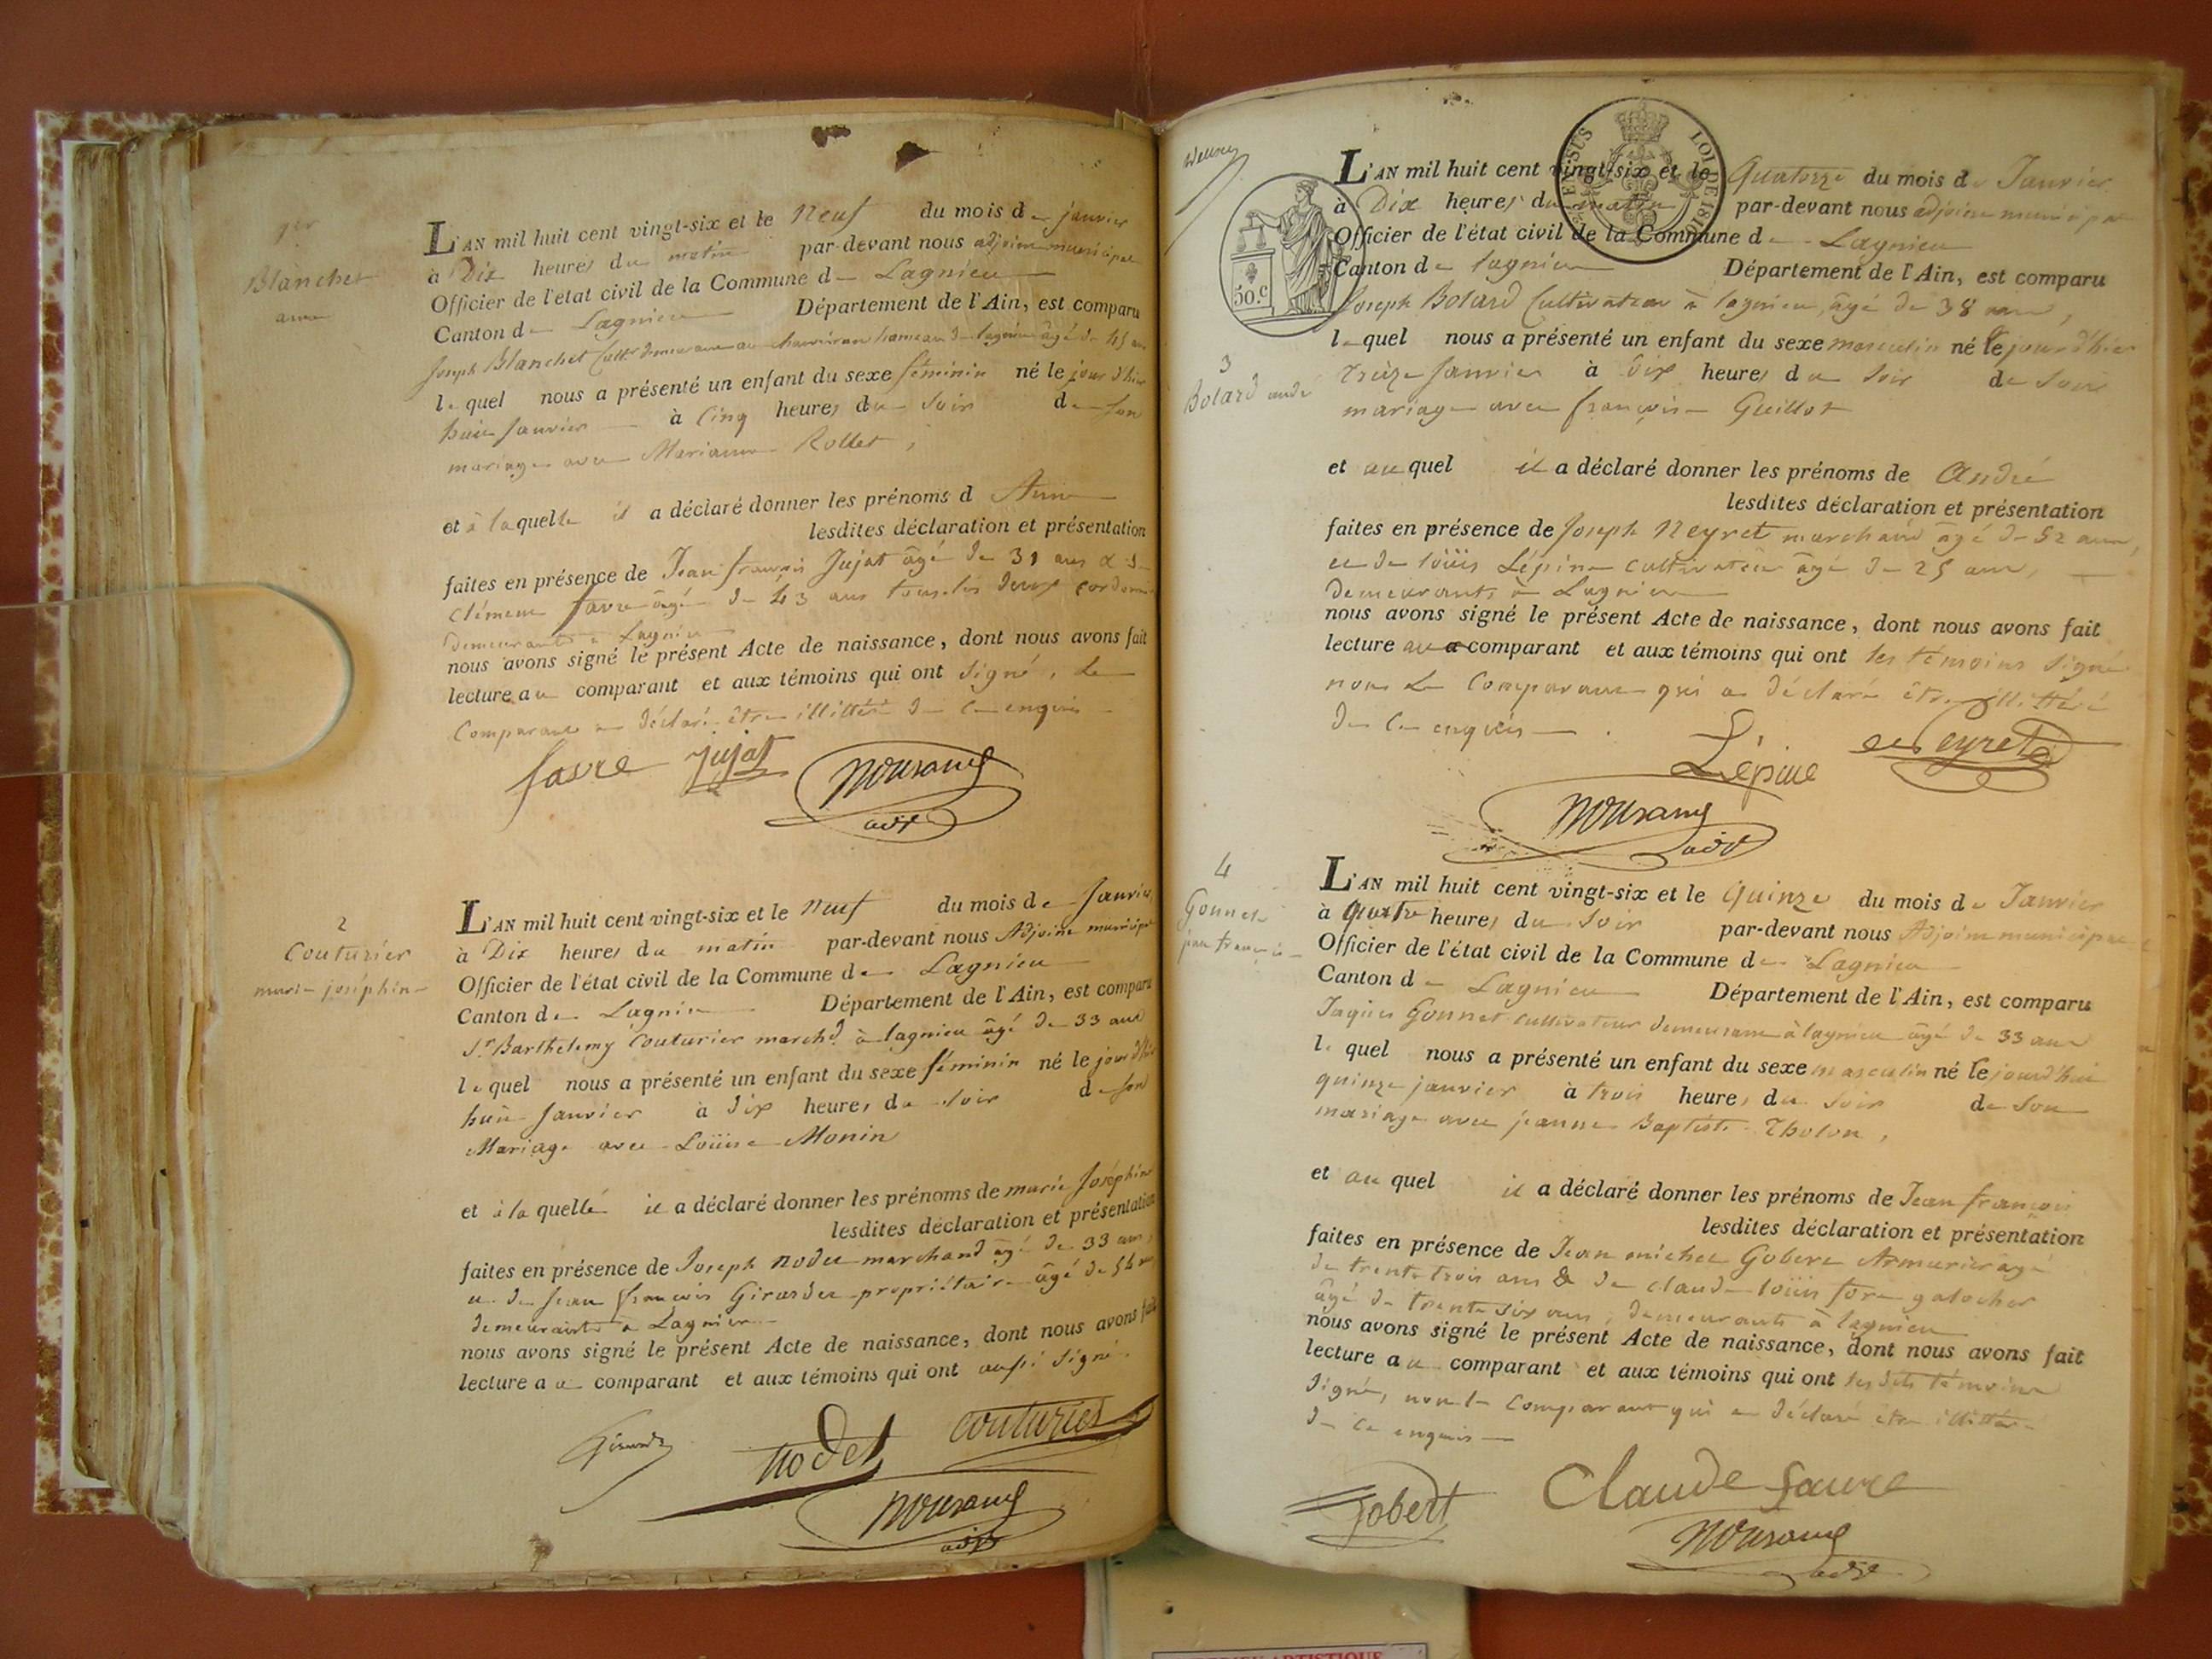 1er
Blanchet
anne
L'AN mil huit cent vingt-six et le Neuf du mois de janvier
à Dix heures du matin par-devant nous adjoint municipal
Officier de l'etat civil de la Commune de Lagnieu
Canton de Lagnieu Département de l'Ain, est comparu
Joseph Blanchet Cultr demeurant au hameau de lagnieu âgé de 45 ans
lequel nous a présenté un enfant du sexe féminin né le jour d'hier
huit Janvier à Cinq heures du Soir de son
mariage avec Marianne Rollet,
et à laquelle il a déclaré donner les prénoms d Anne
lesdites déclaration et présentation
faites en présence de Jean françois Jujat âgé de 31 ans & de
Clément favre âgé de 43 ans tous les deux cordonniers
demeurants à Lagnieu
nous avons signé le présent Acte de naissance, dont nous avons fait
lecture au comparant et aux témoins qui ont signé, le
Comparant a déclaré être illitéré de ce enquis
favre Jujat
adjt
2
Couturier
marie joséphine
L'AN mil huit cent vingt-six et le Neuf du mois de Janvier
à Dix heures du matin par-devant nous Adjoint municipal
Officier de l'état civil de la Commune de Lagnieu
Canton de Lagnieu Département de l'Ain, est comparu
Sr Barthelemy Couturier marchd à lagnieu âgé de 33 ans
lequel nous a présenté un enfant du sexe féminin né le jour d'hier
huit Janvier à Dix heures du soir de son
Mariage avec Loüise Monin
et à laquelle il a déclaré donner les prénoms de marie Joséphine
lesdites déclaration et présentation
faites en présence de Joseph nodet marchand âgé de 33 ans,
et de Jean françois Girardet propriétaire âgé de 54 ans
demeurants à Lagnieu
nous avons signé le présent Acte de naissance, dont nous avons fait
lecture au comparant et aux témoins qui ont aussi signé.
nodet Couturier
adjt
3
Bolard andré
50.c
LOI DE 1816
L'AN mil huit cent vingt-six et le Quatorze du mois de Janvier
à Dix heures du matin par-devant nous adjoint municipal
Officier de l'état civil de la Commune de Lagnieu
Canton de lagnieu Département de l'Ain, est comparu
Joseph Bolard Cultivateur à lagnieu, âgé de 38 ans,
lequel nous a présenté un enfant du sexe masculin né le jour d'hier
treize Janvier à Dix heures du Soir de son
mariage avec françoise Guillot
et auquel il a déclaré donner les prénoms de André
lesdites déclaration et présentation
faites en présence de Joseph Neyret marchand âgé de 52 ans,
et de loüis Lépine cultivateur âgé de 25 ans,
demeurants à Lagnieu
nous avons signé le présent Acte de naissance, dont nous avons fait
lecture au comparant et aux témoins qui ont les témoins signé
non le Comparant qui a déclaré être illittéré
de ce enquis
Lépine Neyret
adjt
4
Gonnet
jean françois
L'AN mil huit cent vingt-six et le Quinze du mois de Janvier
à Quatre heures du Soir par-devant nous Adjoint municipal
Officier de l'état civil de la Commune de Lagnieu
Canton de Lagnieu Département de l'Ain, est comparu
Jaques Gonnet cultivateur demeurant à lagnieu âgé de 33 ans
lequel nous a présenté un enfant du sexe masculin né le jourd'hui
quinze janvier à trois heures du Soir de son
mariage avec jeanne Baptiste Tholon,
et auquel il a déclaré donner les prénoms de Jean françois
lesdites déclaration et présentation
faites en présence de Jean michel Gobert Armurier agé
de trente trois ans & de claude loüis galocher
âgé de trente six ans, demeurants à lagnieu
nous avons signé le présent Acte de naissance, dont nous avons fait
lecture au comparant et aux témoins qui ont lesdits témoins
signé, non le Comparant qui a déclaré être illittéré
de ce enquis
Gobert Claude favre
adjt